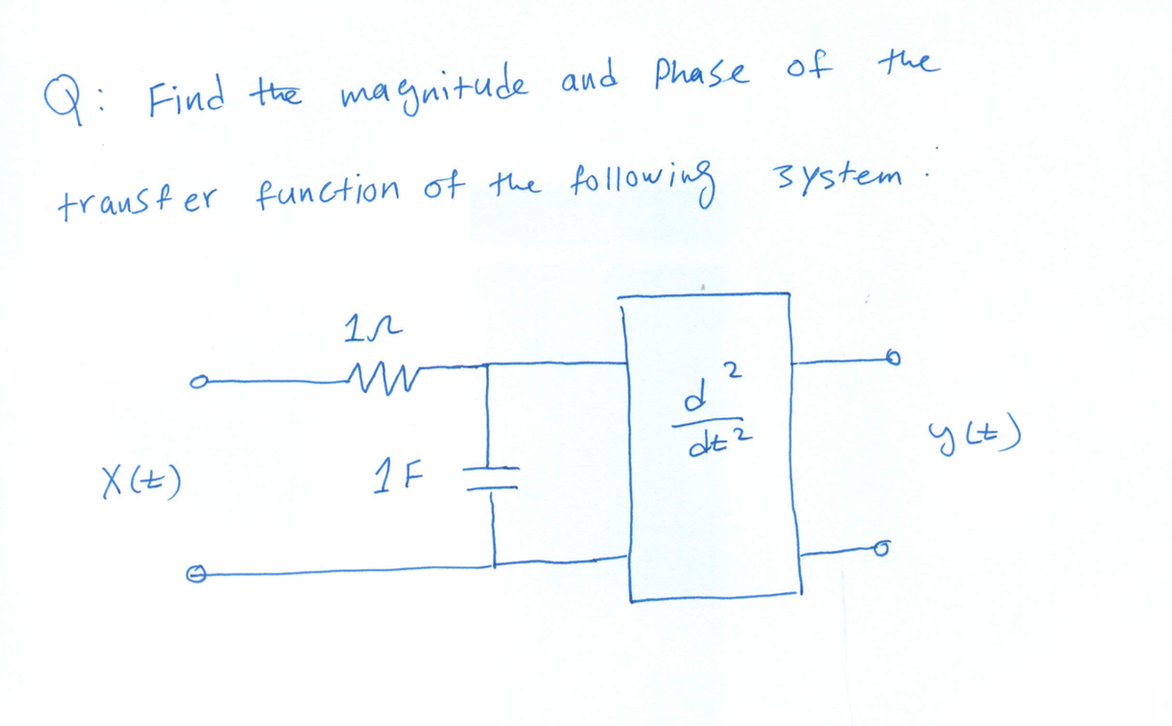 Q: Find the magnitude and Phase of the
transfer function of the following system.
1Ω
d²/dt²
y(t)
X(t)
1F